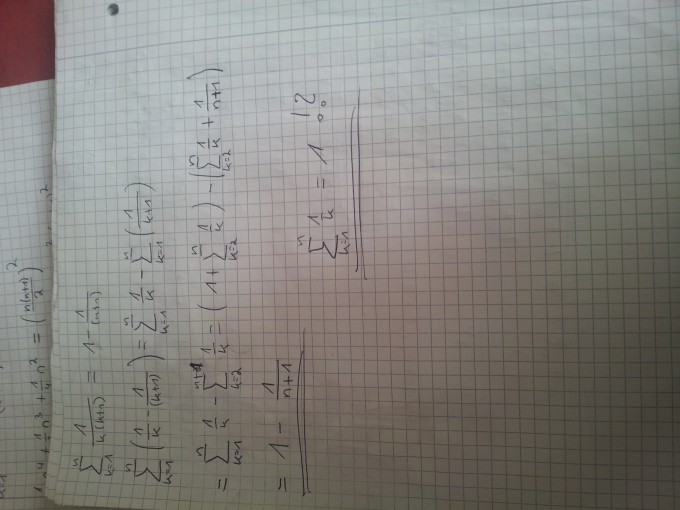 ¼n⁴ + ½n³ + ¼n² = (n(n+1)/2)²
∑_{k=1}^{n} 1/(k(k+1)) = 1 - 1/(n+1)
∑_{k=1}^{n} (1/k - 1/(k+1)) = ∑_{k=1}^{n} 1/k - ∑_{k=1}^{n} (1/(k+1))
= ∑_{k=1}^{n} 1/k - ∑_{k=2}^{n+1} 1/k = (1 + ∑_{k=2}^{n} 1/k) - (∑_{k=2}^{n} 1/k + 1/(n+1))
= 1 - 1/(n+1)
∑_{k=1}^{n} 1/k = 1 !?